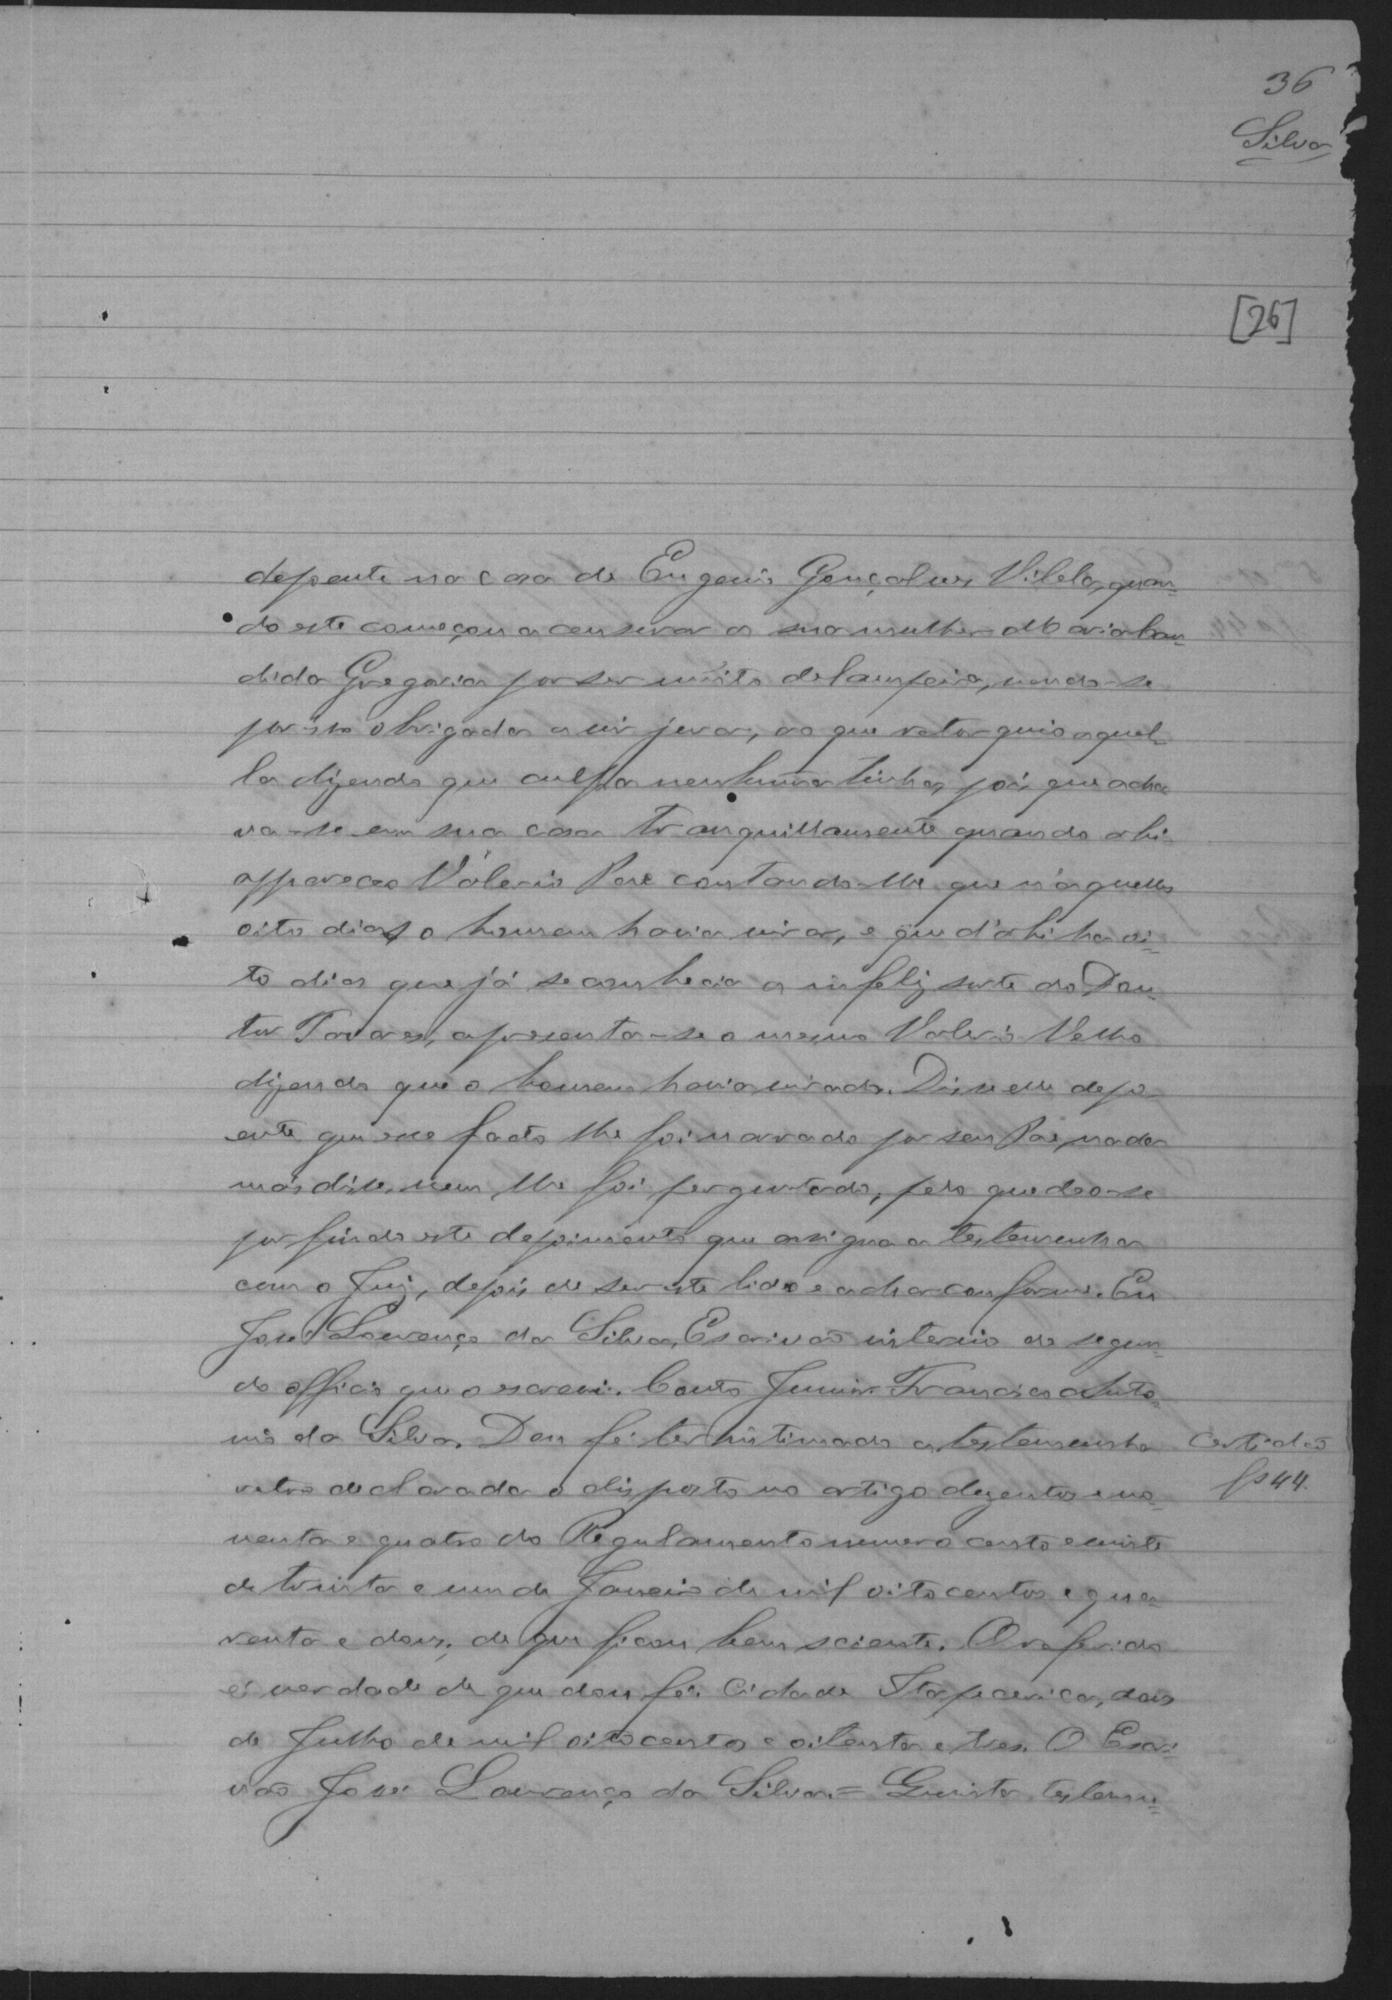 36
Silva
[26]
depoente na casa de Eugenio Gonçalves Vilela, quan-
do este começou a censurar a sua mulher Maria Can-
dida Gregoria por ser muito delampeira, vendo-se
por isso obrigada a vir jurar, ao que retorquio aquel-
la dizendo que culpa nenhuma tinha, pois que acha
va-se em sua casa tranquillamente quando ahi
appareceo Valerio Pae contando-lhe que n'aquelles
oito dias o homem havia virar, e que d'ahi ha oi-
to dias que já se conhecia a infeliz sorte do Dou-
tor Tavares, apresenta-se o mesmo Valerio Velho
dizendo que o homem havia virado. Disse elle depo-
ente que esse facto lhe foi narrado por seu Pae, nada
mais disse, nem lhe foi perguntado, pelo que deo-se
por findo este depoimento que assigna a testemunha
com o Juiz, depois de ser-lhe lido e achar conforme. Eu
José Lourenço da Silva, Escrivão interino do segun-
do officio que o escrevi. Couto Junior. Francisco Anto-
nio da Silva. Dou fé ter intimado a testemunha
retro declarada o disposto no artigo dezentos e no-
venta e quatro do Regulamento numero cento e vinte
de trinta e um de Janeiro de mil oitocentos e qua-
renta e dous, de que ficou bem sciente. O referido
é verdade de que dou fé. Cidade Itapecerica, dois
de Julho de mil oitocentos e oitenta e tres. O Escri-
vão José Lourenço da Silva.= Quinta testemu-
Certidão
fs 44.